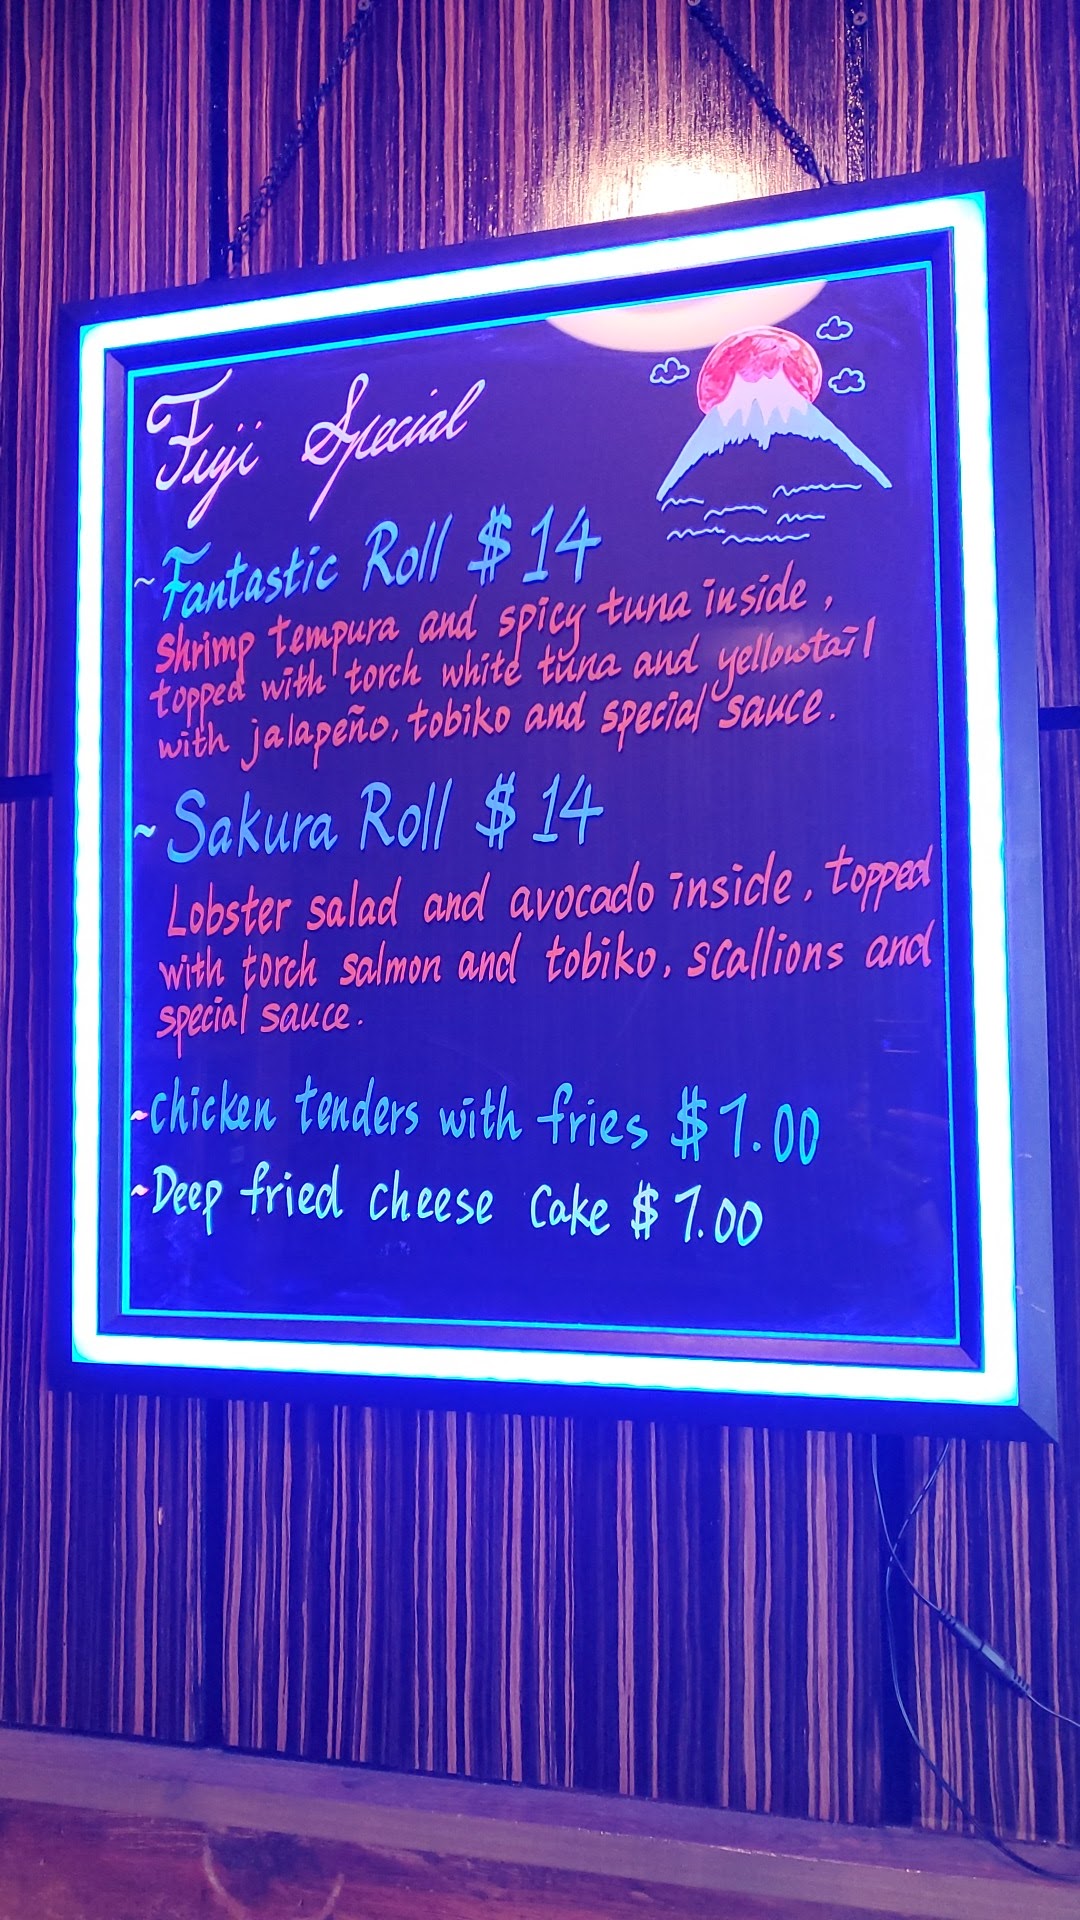 Fiji Special
~Fantastic Roll $14
Shrimp tempura and spicy tuna inside,
topped with torch white tuna and yellowtail
with jalapeño, tobiko and special sauce.
~Sakura Roll $14
Lobster salad and avocado inside, topped
with torch salmon and tobiko, scallions and
special sauce.
~chicken tenders with fries $7.00
~Deep fried cheese cake $7.00